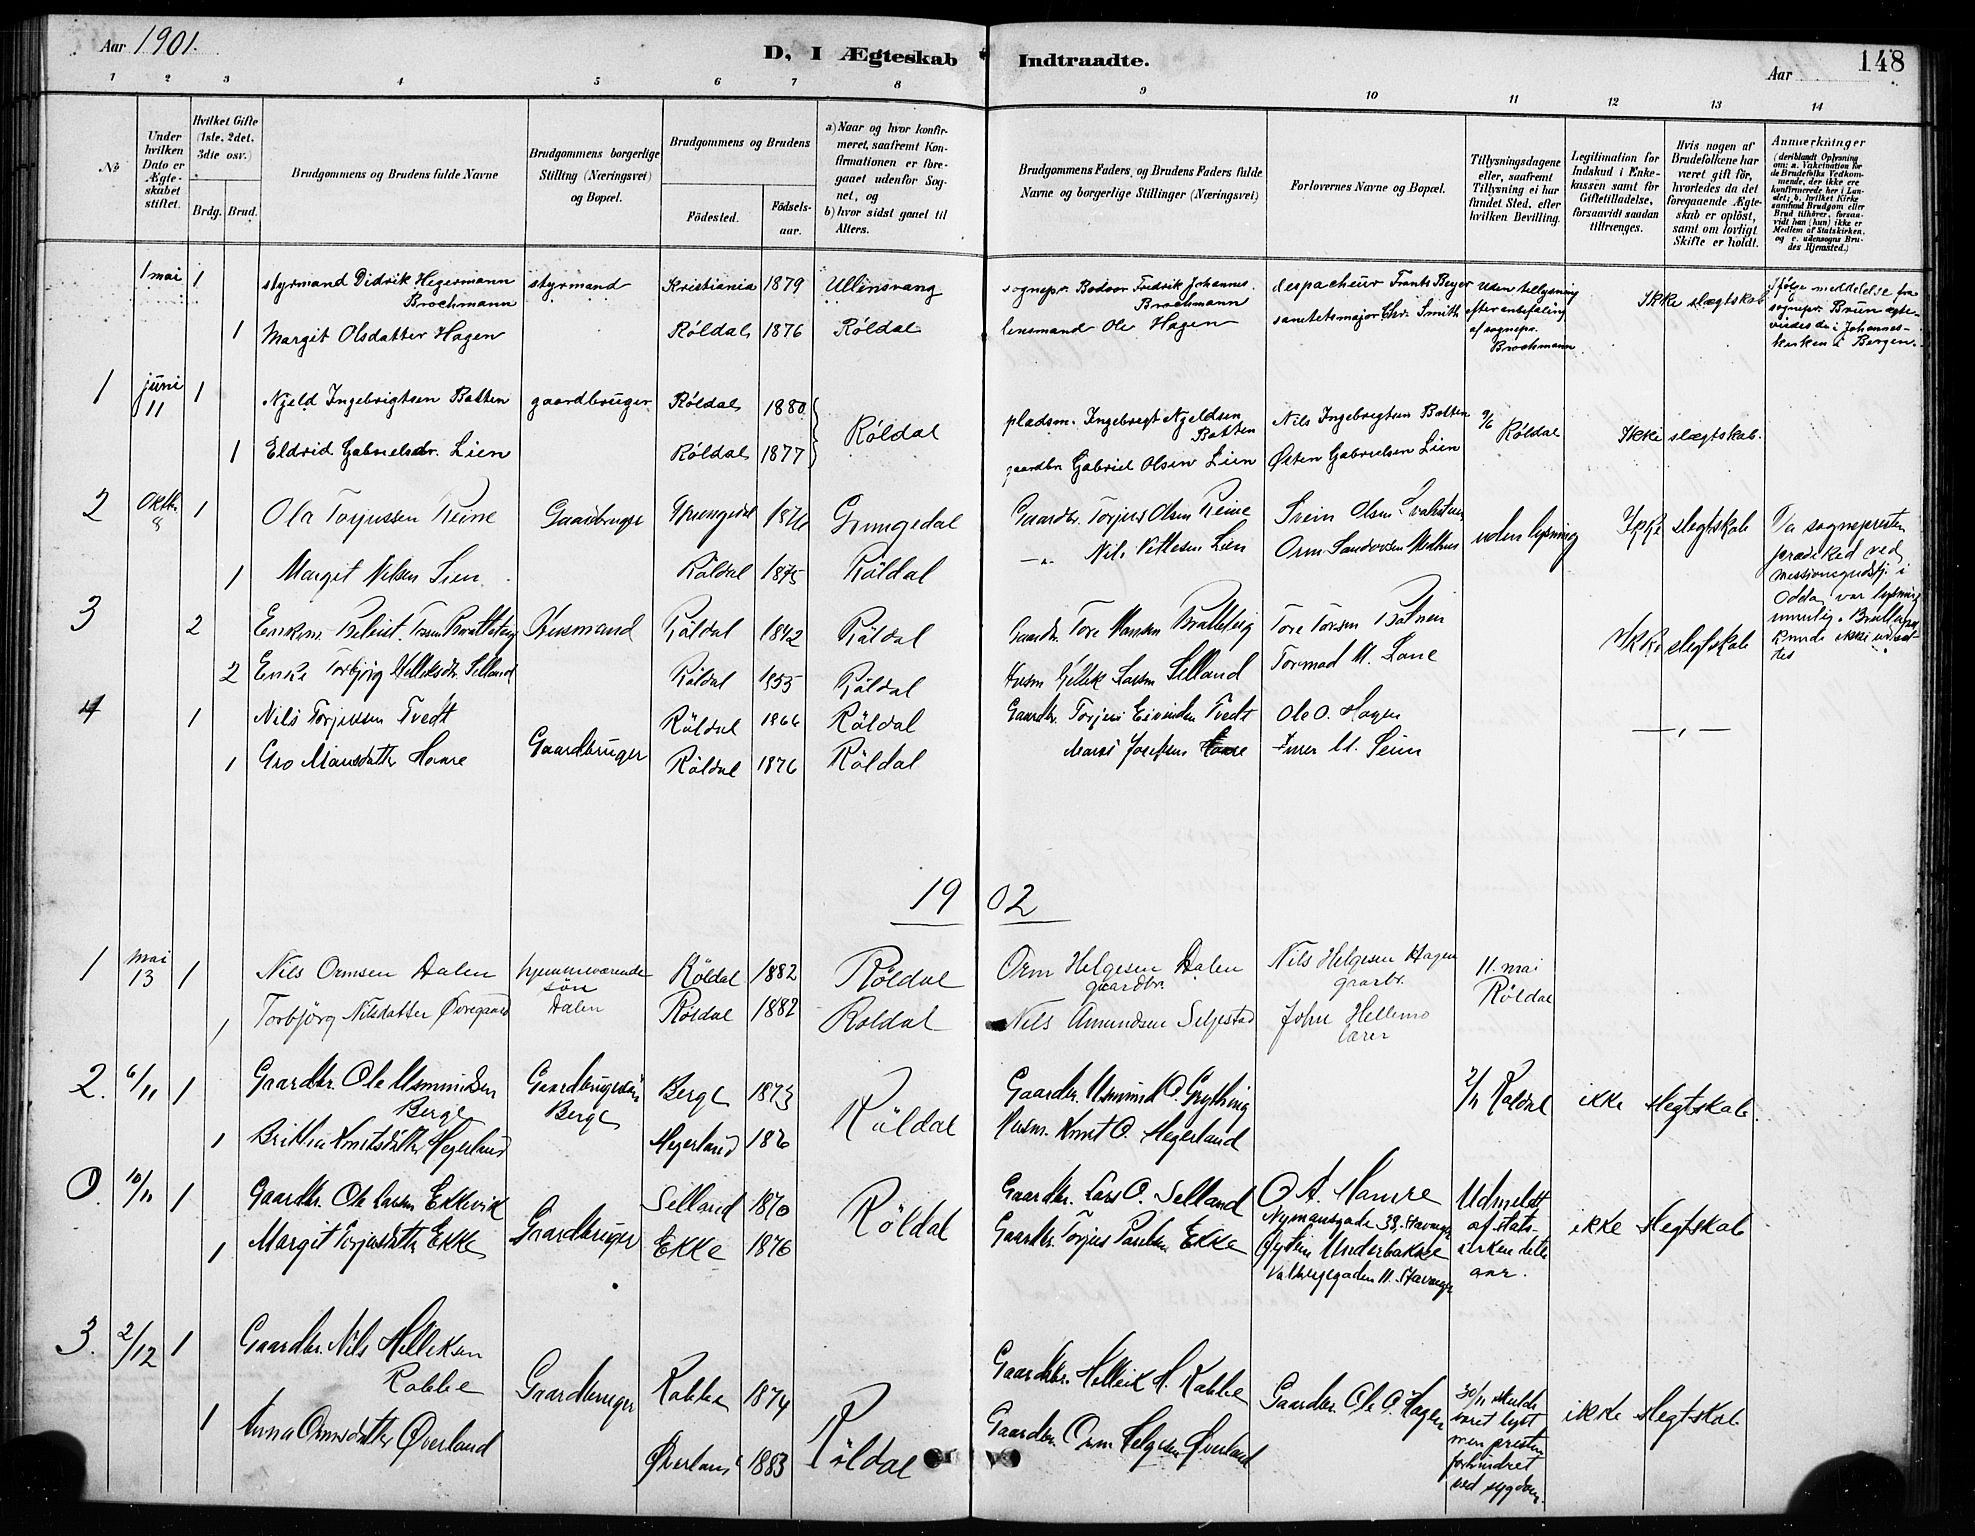 Aar 1901.
D, I Ægteskab Indtraadte.
Aar
148
1 2 3 4 5 6 7 8 9 10 11 12 13 14
No
Under hvilken Dato er Ægteskabet stiftet.
Hvilket Gifte (1ste, 2det, 3die osv.)
Brdg. Brud.
Brudgommens og Brudens fulde Navne
Brudgommens borgerlige Stilling (Næringsvei) og Bopæl.
Brudgommens og Brudens
Födested.
Födsels-aar.
a) Naar og hvor konfirmeret, saafremt Konfirmationen er foregaaet udenfor Sognet, og
b) hvor sidst gaaet til Alters.
Brudgommens Faders, og Brudens Faders fulde Navne og borgerlige Stillinger (Næringsvei)
Forlovernes Navne og Bopæl.
Tillysningsdagene eller, saafremt Tillysning ei har fundet Sted, efter hvilken Bevilling.
Legitimation for Indskud i Enkekassen samt for Giftetilladelse, forsaavidt saadan tiltrænges.
Hvis nogen af Brudefolkene har været gift för, hvorledes da det foregaaende Ægteskab er oplöst, samt om lovligt Skifte er holdt.
Anmærkninger
(deriblandt Oplysning om: a. Vakcination for de Brudefolks Vedkommende, der ikke ere konfirmerede her i Landet; b. hvilket Kirkesamfund Brudgom eller Brud tilhörer, forsaavidt han (hun) ikke er Medlem af Statskirken, og c. udensogns Brudes Hjemsted.)
1 mai 1 styrmand Didrik Hegermann Brochmann styrmand Kristiania 1879 Ullensvang sognepr. Bodvar Fredrik Johannes Brochmann despacheur Frants Beyer uden tillysning Ikke slægtskab Ifølge meddelelse fra
1 Margit Olsdatter Hagen Röldal 1876 Röldal lensmand Ole Hagen sanitetsmajor Chr. Smith efter anbefaling af sognepr. Brochmann sognepr. Bruun ægteviedes de i Johanneskirken i Bergen.
1 juni 11 1 Njeld Ingebrigtsen Botten gaardbruger Röldal 1880 Röldal pladsm. Ingebregt Njeldsen Botten Nils Ingebregtsen Botten 9/6 Röldal Ikke slægtskab.
1 Eldrid Gabrielsdr. Lien Röldal 1877 gaardbr Gabriel Olsen Lien Østen Gabrielsen Lien
2 Oktb. 8 1 Ola Torjussen Reine Gaardbruger Grungedal Grungedal Gaardbr. Torjus Olsen Reine Svein Olsen uden lysning Ikke slegtskab Da sognepresten
1 Margit Nilsen Lien Röldal 1875 Röldal Nils Lien Orm prædiked ved missionsgudstj. i Odda, var lysning umulig. Brullupet kunde ikke udsættes
3 2 Enkem. Husmand Röldal 1842 Röldal Gaardbr. Tore Hansen Bratteteig Tore Torsen Ikke slegtskab
2 Enke Torbjörg Helleksdr. Selland Röldal 1855 Röldal Husm Gellek Larsen Selland Tormod M. Lone
4 1 Nils Torjussen Tvedt Gaardbruger Röldal 1866 Röldal Gaardbr. Torjus Eivinden Tvedt Ole O. Hagen —„—
1 Gro Mansdatter Hamre Röldal 1876 Röldal Josefsen Hamre M. Seim
1902
1 Mai 13 1 Nils Ormsen Dalen hjemmeværende sön Dalen Röldal 1882 Röldal Orm Helgesen Dalen gaardbr. Nils Helgesen Hagen gaarbr. 11. mai Röldal
1 Torbjörg Nilsdatter Röldal 1882 Röldal Nils Amundsen Seljestad John Hellemo lærer
2. 6/11 1 Gaardbr. Ole Asmundsen Berge Gaardbrugesön Berge Berge 1873 Röldal Gaardbr. Asmund O. Grytting 2/11 Röldal ikke slegtskab.
1 Brithia Knutsdatter Hegerland Hegerland 187 Husm. Knut O. Hegerland
0. 10/11 1 Gaardbr. Ole Larsen Ekkevik Gaardbruger Selland 1870 Röldal Gaardbr. Lars O. Selland O A. Hamre Nymansgade 38, Stavanger Udmeldt af statskirken dette aar. ikke slegtskab
1 Margit Torjusdatter Ekke Ekke 1876 Gaardbr. Torjus Paulsen Ekke Øystein Underbakke Valbergegaden 11. Stavanger
3. 2/12 1 Gaardbr. Nils Helleksen Rabbe Gaardbruger Rabbe 1874 Röldal Gaardbr. Helleik H. Rabbe Gaardbr. Ole O. Hagen 30/11 skulde været lyst men presten forhindret ved sygdom. ikke slegtskab
1 Anna Ormsdatter Øverland Øverland 1883 Gaardbr. Orm Helgesen Øverland